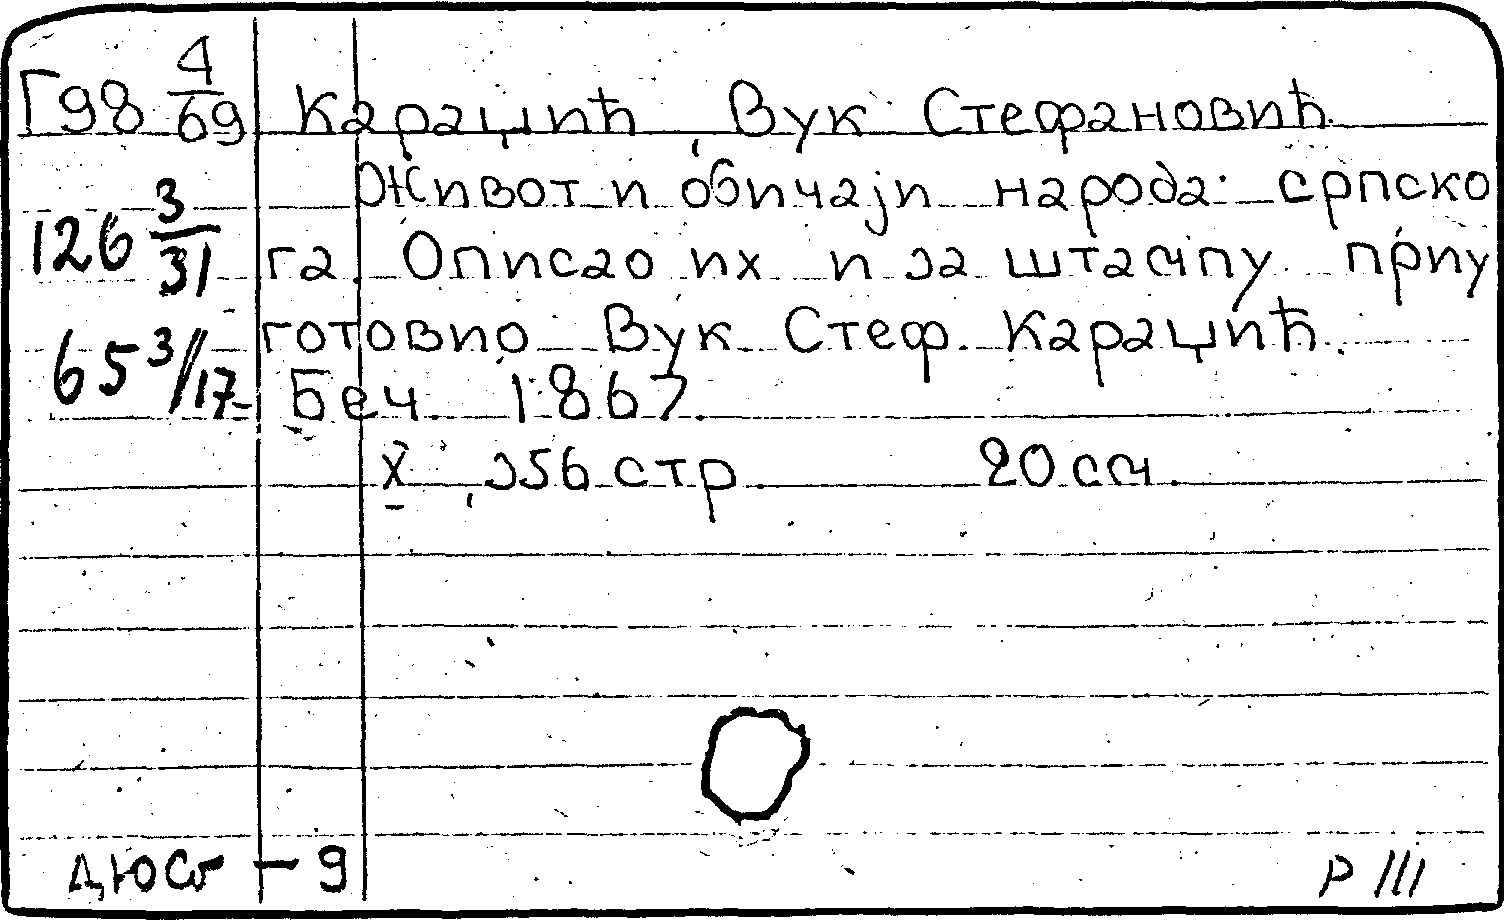 Г98 4/69 Караџић, Вук Стефановић.
Живот и обичаји народа српско
126 3/31 га. Описао их и за штампуприу
готовио Вук Стеф. Караџић.
65 3/17 Беч. 1867.
X, 356 стр. 20 см.
P III